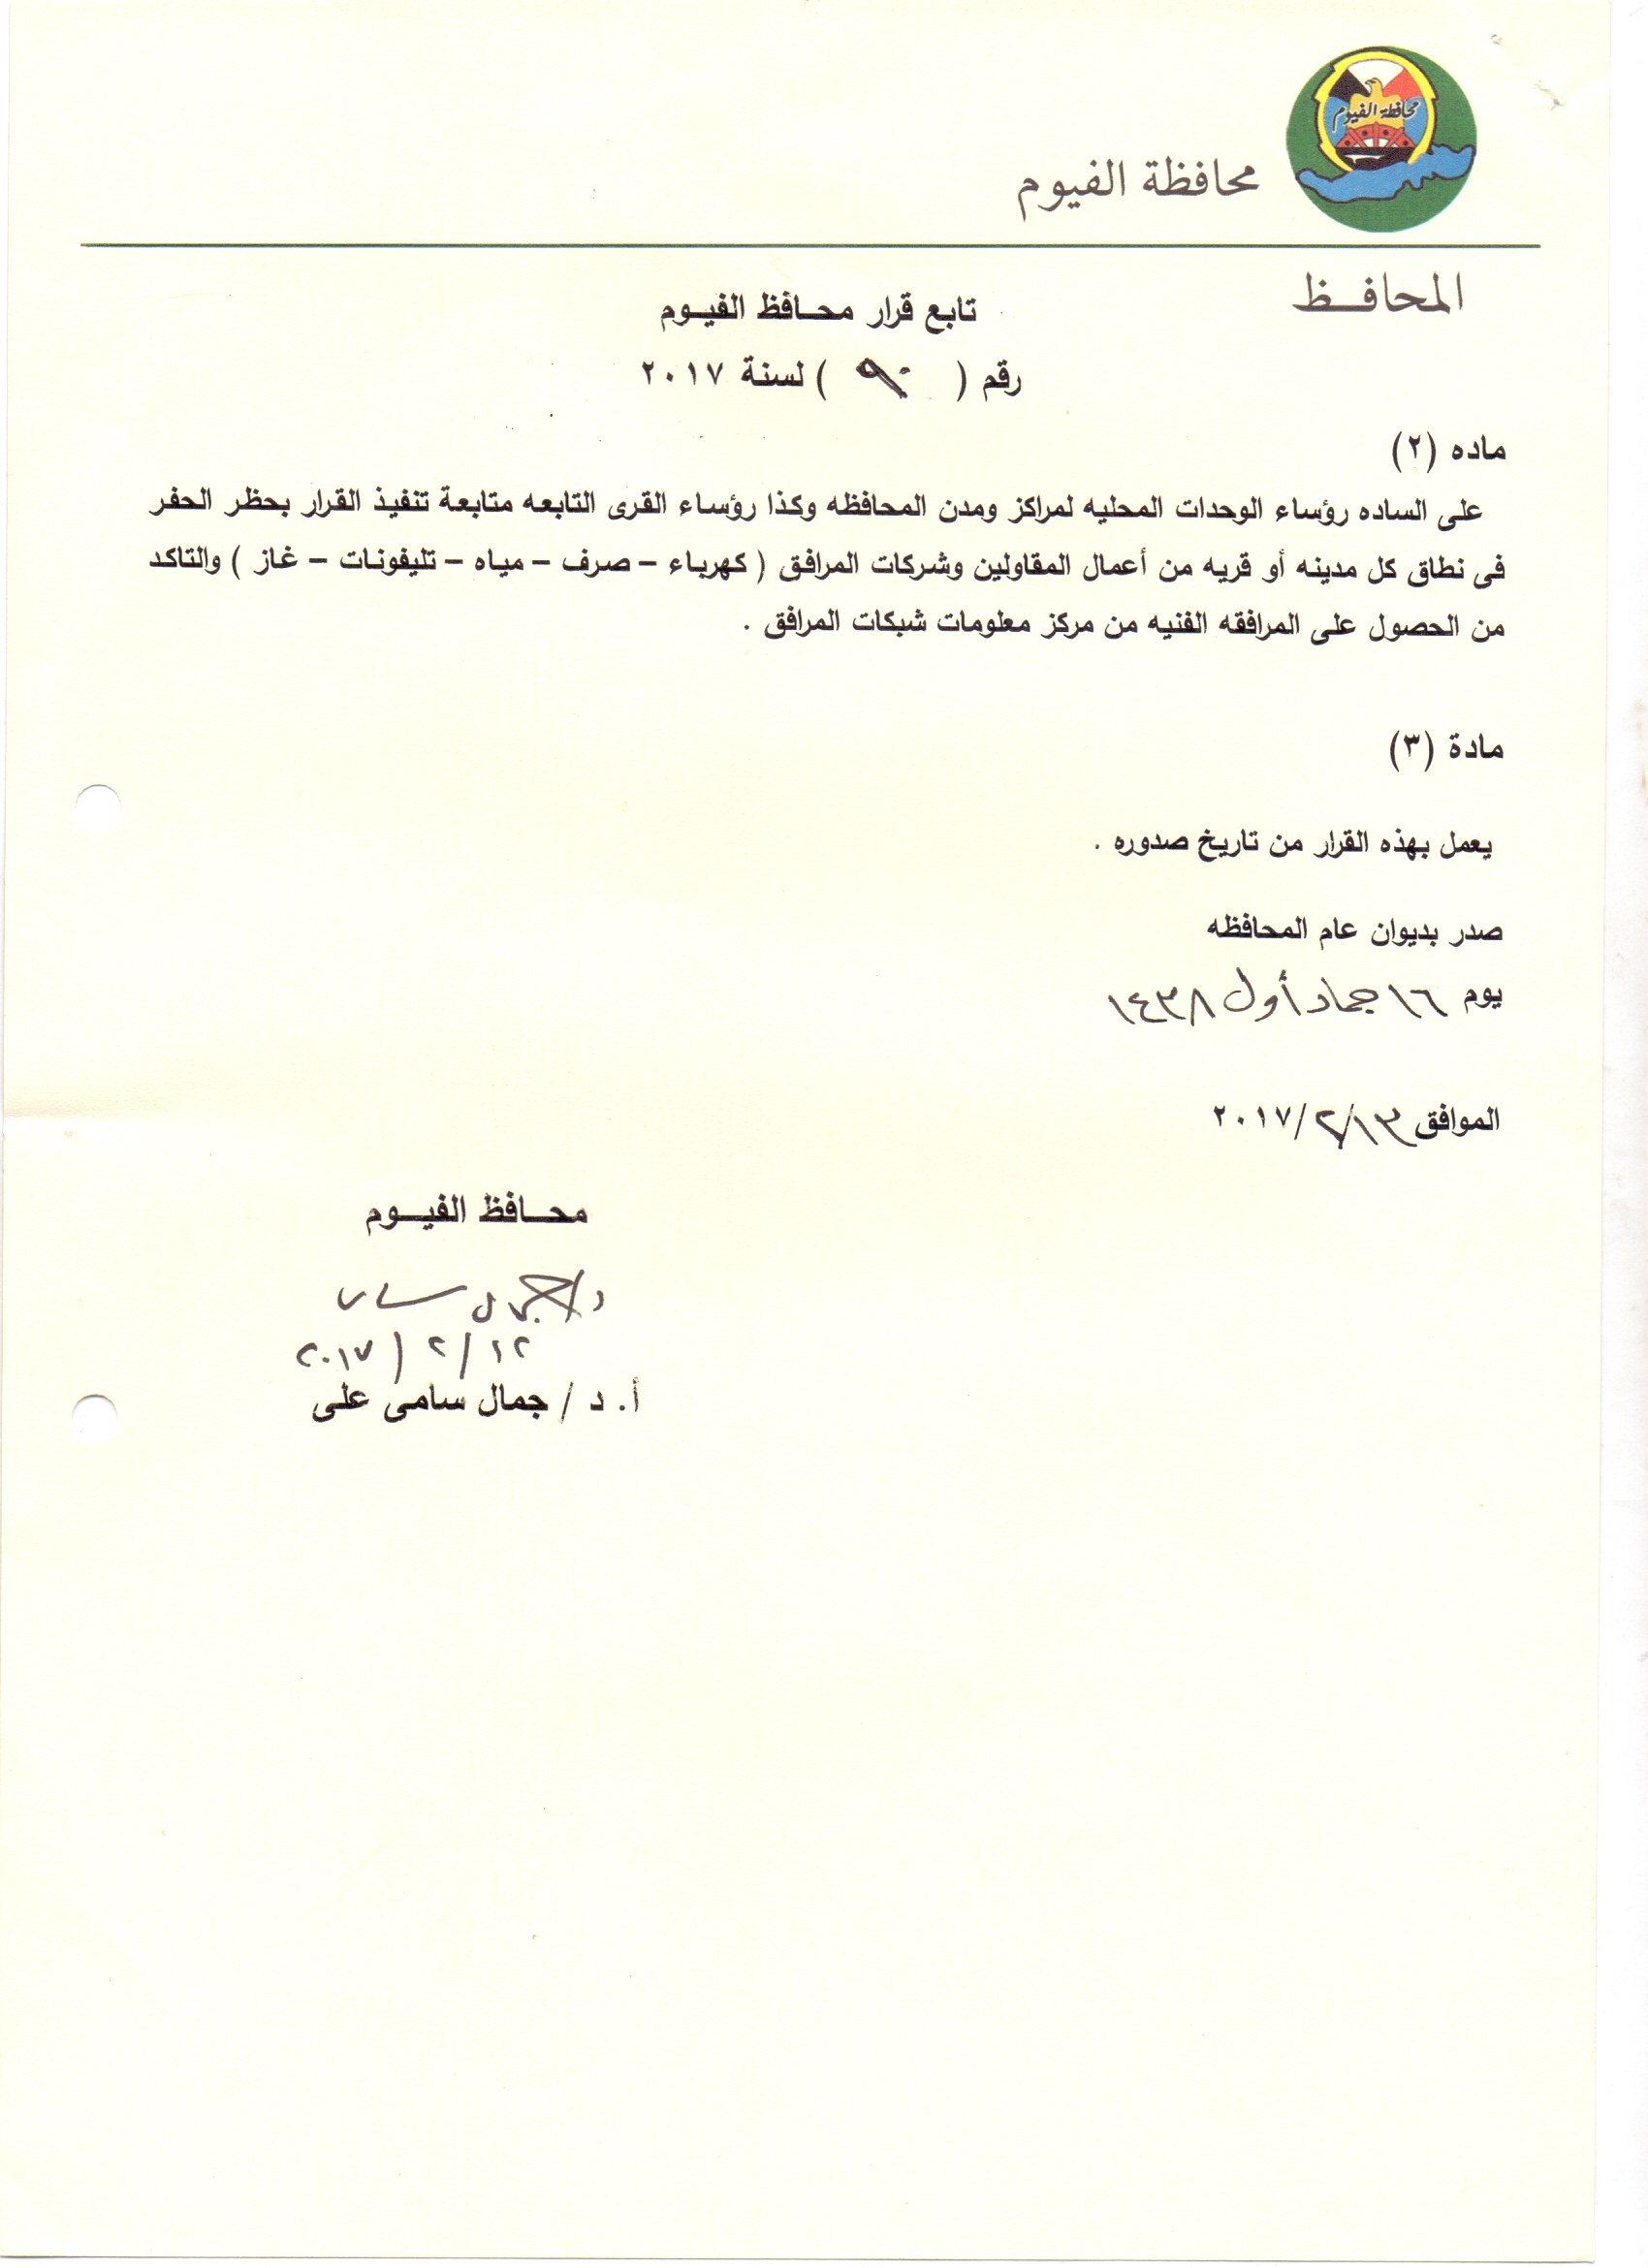 محافظة الفيوم
محافظة الفيوم
المحافـــظ
تابع قرار محـــافظ الفيـــوم
رقم ( ٩٠ ) لسنة ٢٠١٧
ماده (٢)
على الساده رؤساء الوحدات المحليه لمراكز ومدن المحافظه وكذا رؤساء القرى التابعه متابعة تنفيذ القرار بحظر الحفر
فى نطاق كل مدينه أو قريه من أعمال المقاولين وشركات المرافق ( كهرباء – صرف – مياه – تليفونات – غاز ) والتاكد
من الحصول على المرافقه الفنيه من مركز معلومات شبكات المرافق .
مادة (٣)
يعمل بهذه القرار من تاريخ صدوره .
صدر بديوان عام المحافظه
يوم ١٦ جماد أول ١٤٣٨
الموافق ١٣/٢/٢٠١٧
محـــافظ الفيـــوم
١٢/٢/٢٠١٧
أ. د / جمال سامى على